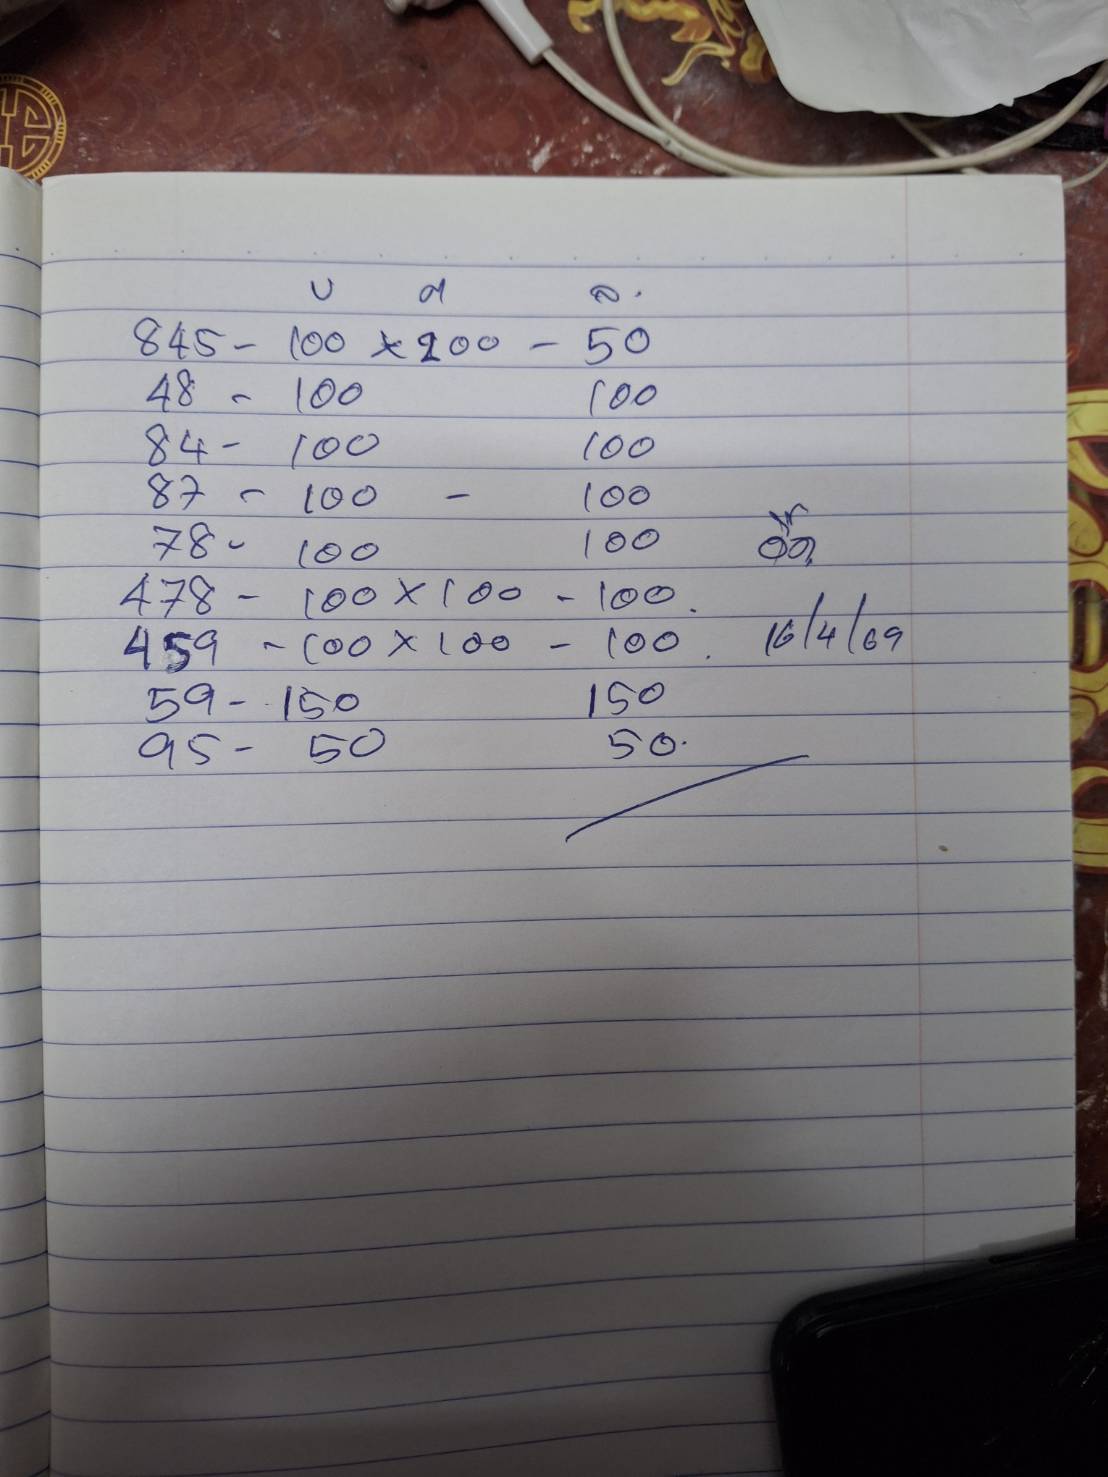 บ ต ล.
845 - 100 × 200 - 50
48 - 100 100
84 - 100 100
87 - 100 - 100
78 - 100 100
478 - 100 × 100 - 100.
459 - 100 × 100 - 100. 16/4/69
59 - 150 150
95 - 50 50.